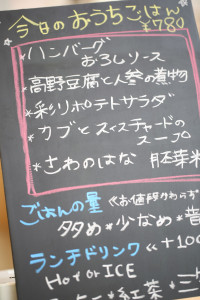 今日のおうちごはん
¥780
*ハンバーグ
おろしソース
*高野豆腐と人参の煮物
*彩りポテトサラダ
*カブとスイスチャードの
スープ
*さわのはな 胚芽米
ごはんの量 お値段かわらず
多め*少なめ*普
ランチドリンク +100
Hot or ICE
紅茶